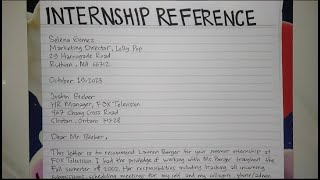 INTERNSHIP REFERENCE
Selena Gomez
Marketing Director, Lolly Pop
23 Haeregrade Road
Ruthan, MA
October 10/2023
Justin Bieber
HR Manager, FOX Television
Chang Cross Road
Clinton, Ontario
Dear Mr. Bieber,
This letter is to recommend Lauren Banger for your summer internship at
FOX Television. I had the priviledge of working with Ms. Banger throughout the
Fall semester of 2000. Her responsibilities including tracking all incoming
scheduling meetings for my